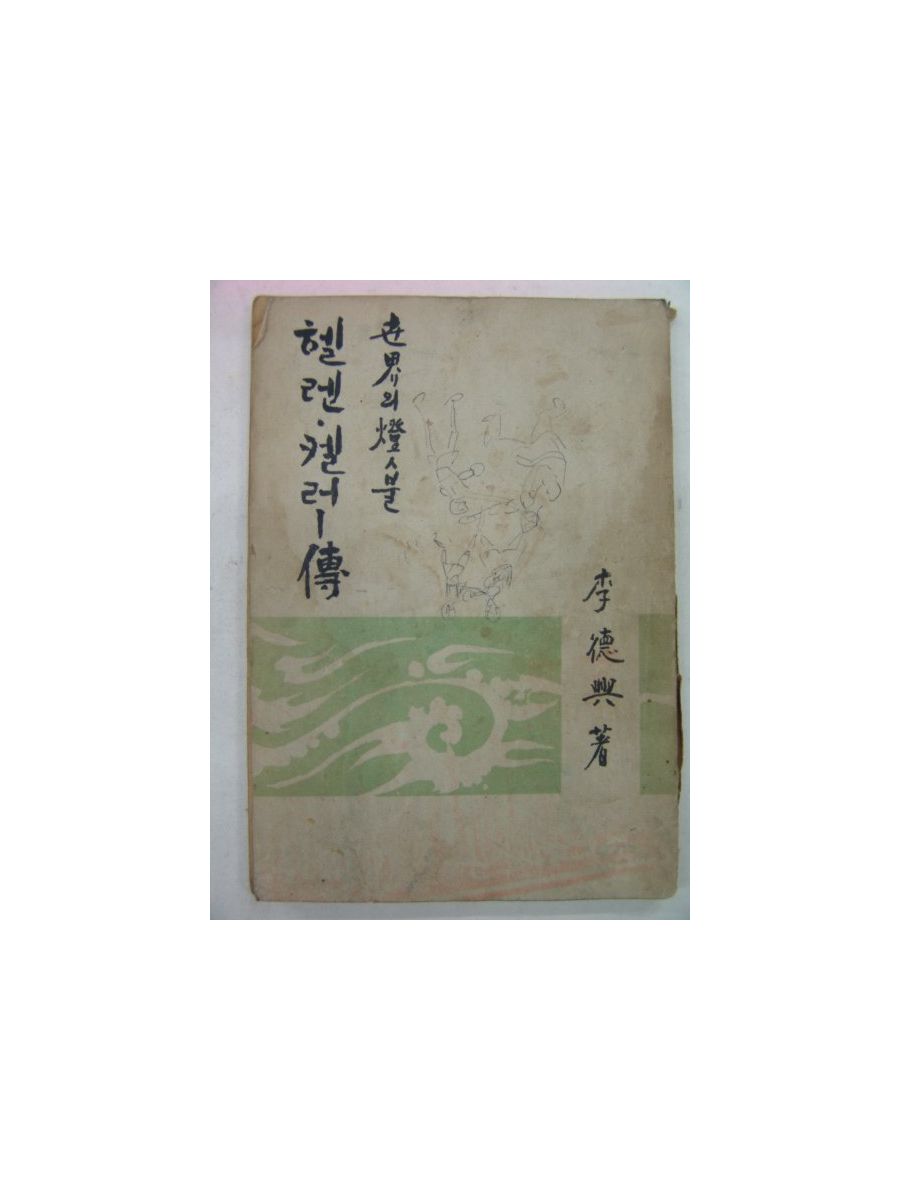 世界의 燈ㅅ불
헬렌·켈러ー傳
李德興 著